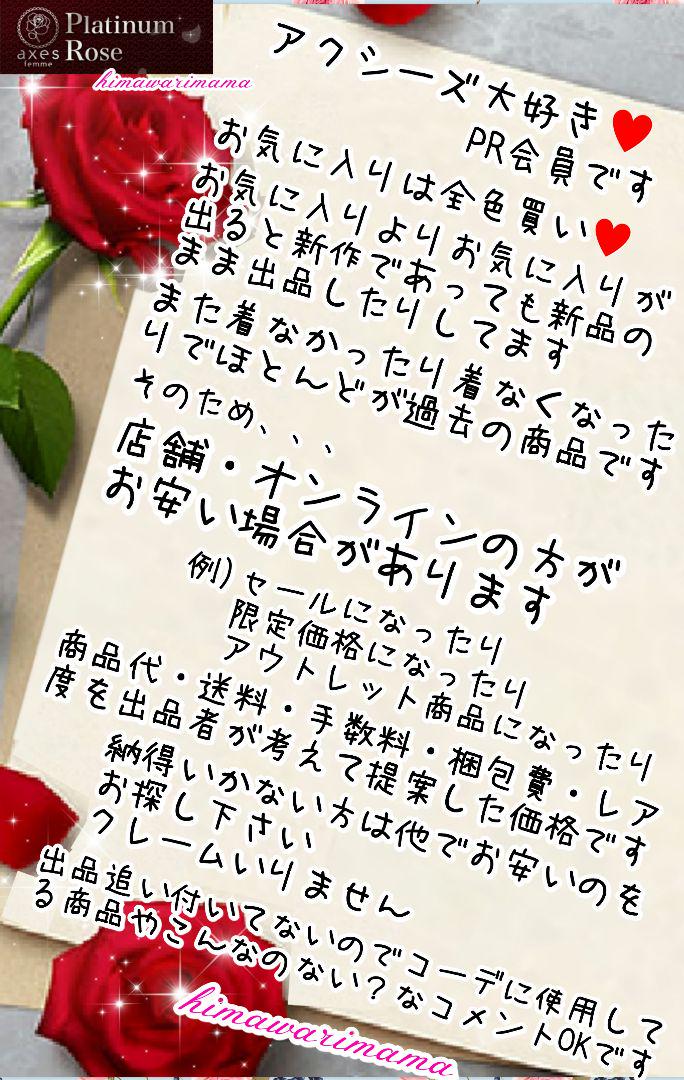 Platinum
axes Rose
femme
himawarimama
アクシーズ大好き❤
PR会員です
お気に入りは全色買い❤
お気に入りよりお気に入りが
出ると新作であっても新品の
まま出品したりしてます
また着なかったり着なくなった
りでほとんどが過去の商品です
そのため、、、
店舗・オンラインの方が
お安い場合があります
例)セールになったり
限定価格になったり
アウトレット商品になったり
商品代・送料・手数料・梱包費・レア
度を出品者が考えて提案した価格です
納得いかない方は他でお安いのを
お探し下さい
クレームいりません
出品追い付いてないのでコーデに使用して
る商品やこんなのない?なコメントOKです
himawarimama